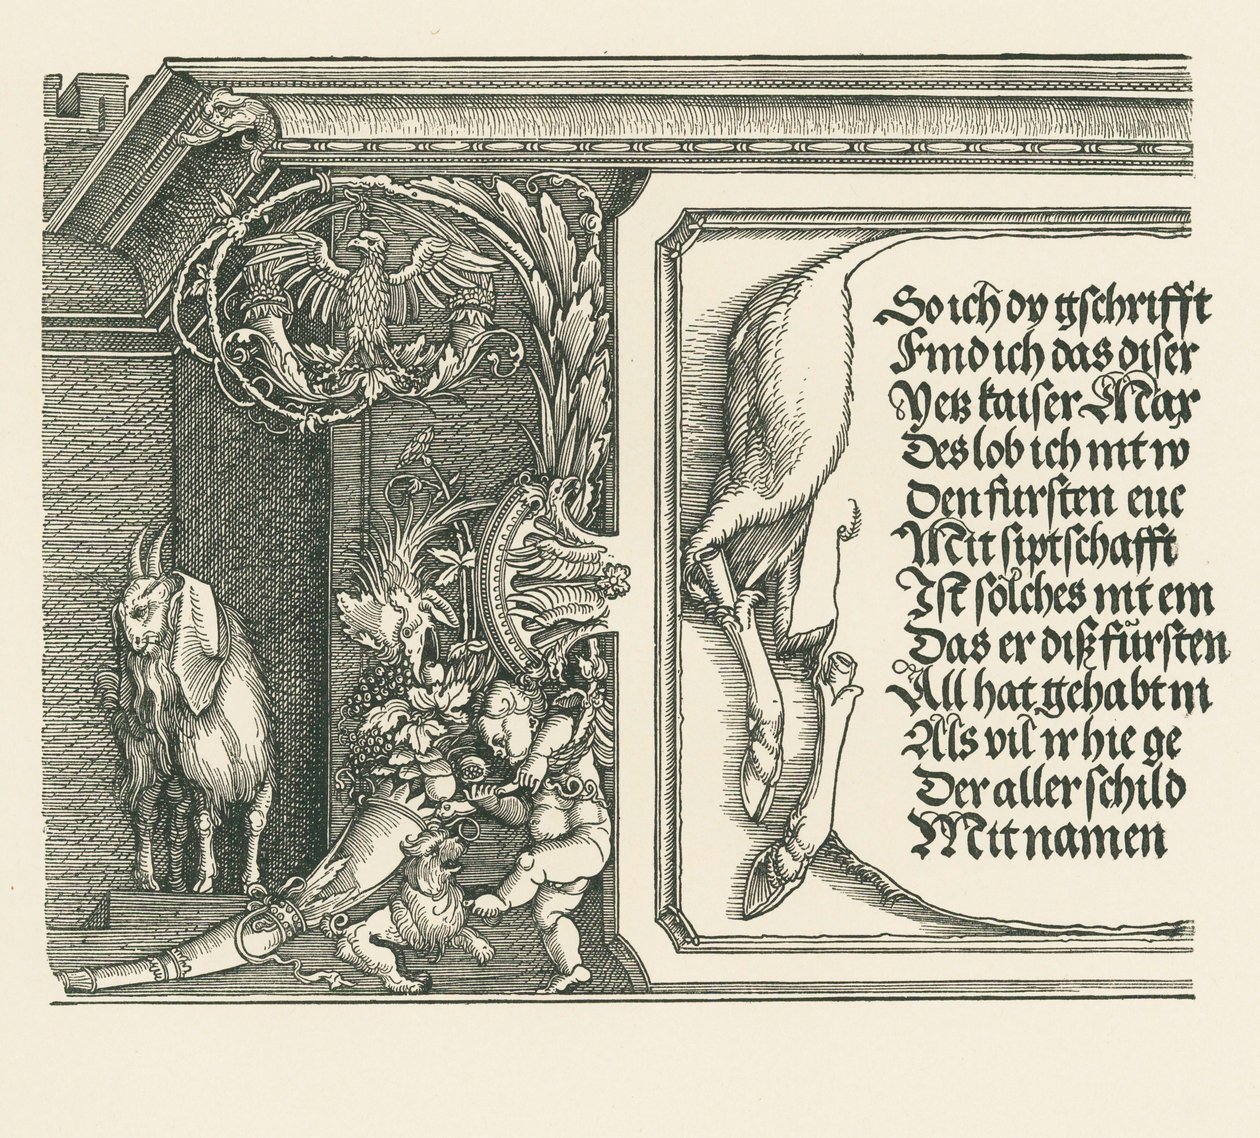 So ich dy gschrifft
Find ich das diser
Yetz kaiser Max
Des lob ich mit w
Den fursten euc
Mit siptschafft
Ist solches mit em
Das er diß fürsten
All hat gehabt ni
Als vil ir hie ge
Der aller schild
Mit namen